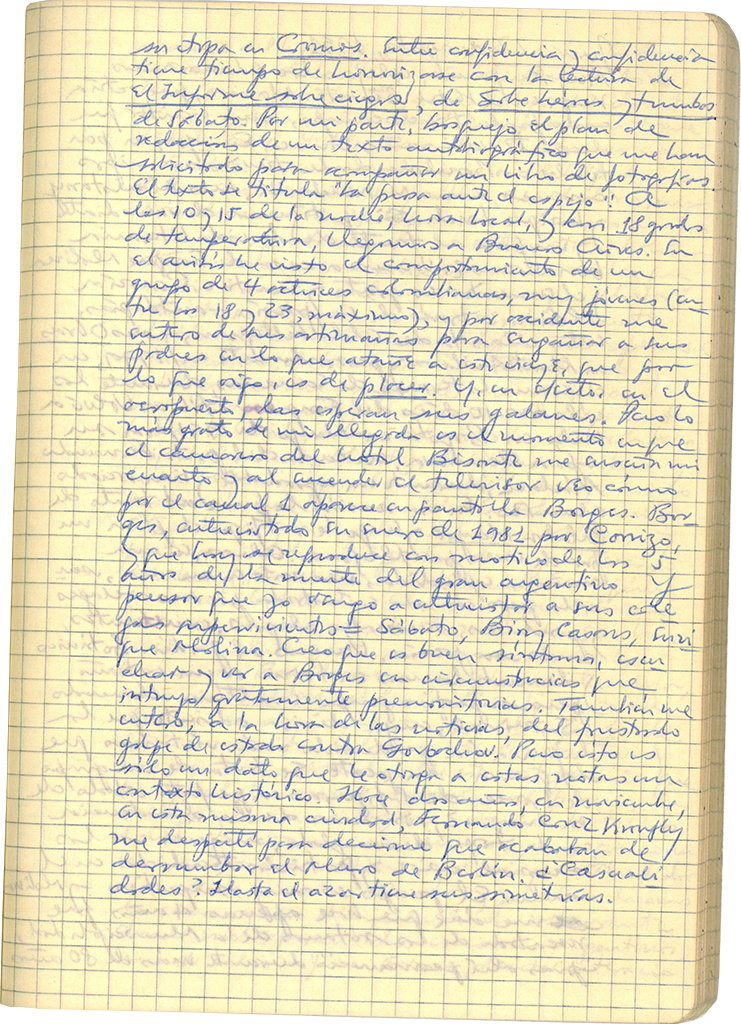 su etapa en Cosmos. Entre confidencia y confidencia
tiene tiempo de horrorizarse con la lectura de
El Informe sobre ciegos, de Sobre héroes y tumbas
de Sábato. Por mi parte, bosquejo el plan de
redacción de un texto autobiográfico que me han
solicitado para acompañar un libro de fotografías.
El texto se titula "La prosa ante el espejo". A
las 10 y 15 de la noche, hora local, y con 18 grados
de temperatura, llegamos a Buenos Aires. En
el avión he visto el comportamiento de un
grupo de 4 actrices colombianas, muy jóvenes (en-
tre los 18 y 23, máximo), y por accidente me
entero de sus artimañas para engañar a sus
padres en lo que atañe a este viaje, que por
lo que oigo, es de placer. Y, en efecto, en el
aeropuerto las esperan sus galanes. Pero lo
más grato de mi llegada es el momento en que
el camarero del hotel Bisonte me enseña mi
cuarto y al encender el televisor veo cómo
por el canal 1 aparece en pantalla Borges. Bor-
ges, entrevistado en enero de 1981 por Carrizo,
y que hoy se reproduce con motivo de los 5
años de la muerte del gran argentino. Y
pensar que yo vengo a entrevistar a sus cole
gas supervivientes= Sábato, Bioy Casares, Enri
que Molina. Creo que es buen síntoma, escu
char y ver a Borges en circunstancias que,
intuyo, gratamente premonitorias. También me
entero, a la hora de las noticias, del frustrado
golpe de estado contra Gorbachov. Pero esto es
sólo un dato que le otorga a estas notas un
contexto histórico. Hace dos años, en noviembre,
en esta misma ciudad, Fernando Cruz Kronfly
me despertó para decirme que acababan de
derrumbar el Muro de Berlín. ¿Casuali
dades? Hasta el azar tiene sus simetrías.